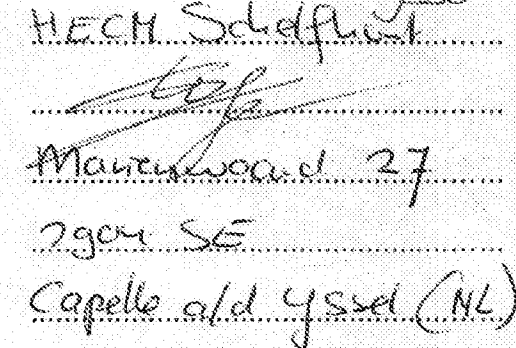 HECM Schelfhout
Marienwaard 27
2904 SE
Capelle a/d Yssel (NL)